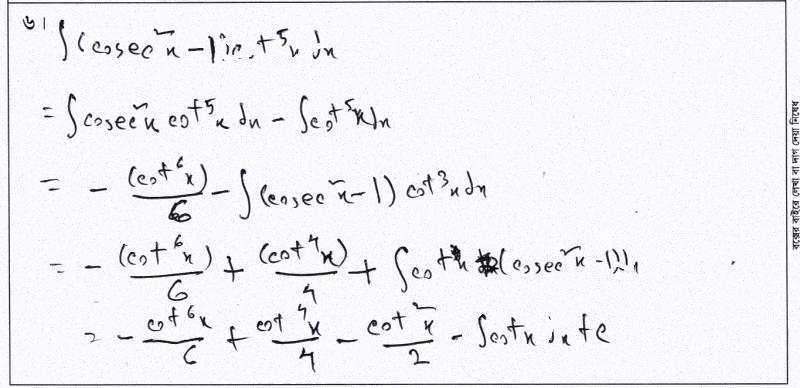 ৬।
∫(cosec²x - 1) cot⁵x dx
= ∫cosec²x cot⁵x dx - ∫cot⁵x dx
= - (cot⁶x)/6 - ∫(cosec²x - 1) cot³x dx
= - (cot⁶x)/6 + (cot⁴x)/4 + ∫cot x (cosec²x - 1)
= - cot⁶x/6 + cot⁴x/4 - cot²x/2 - ∫cotx dx + c
বক্সের বাইরে লেখা বা দাগ দেয়া নিষেধ